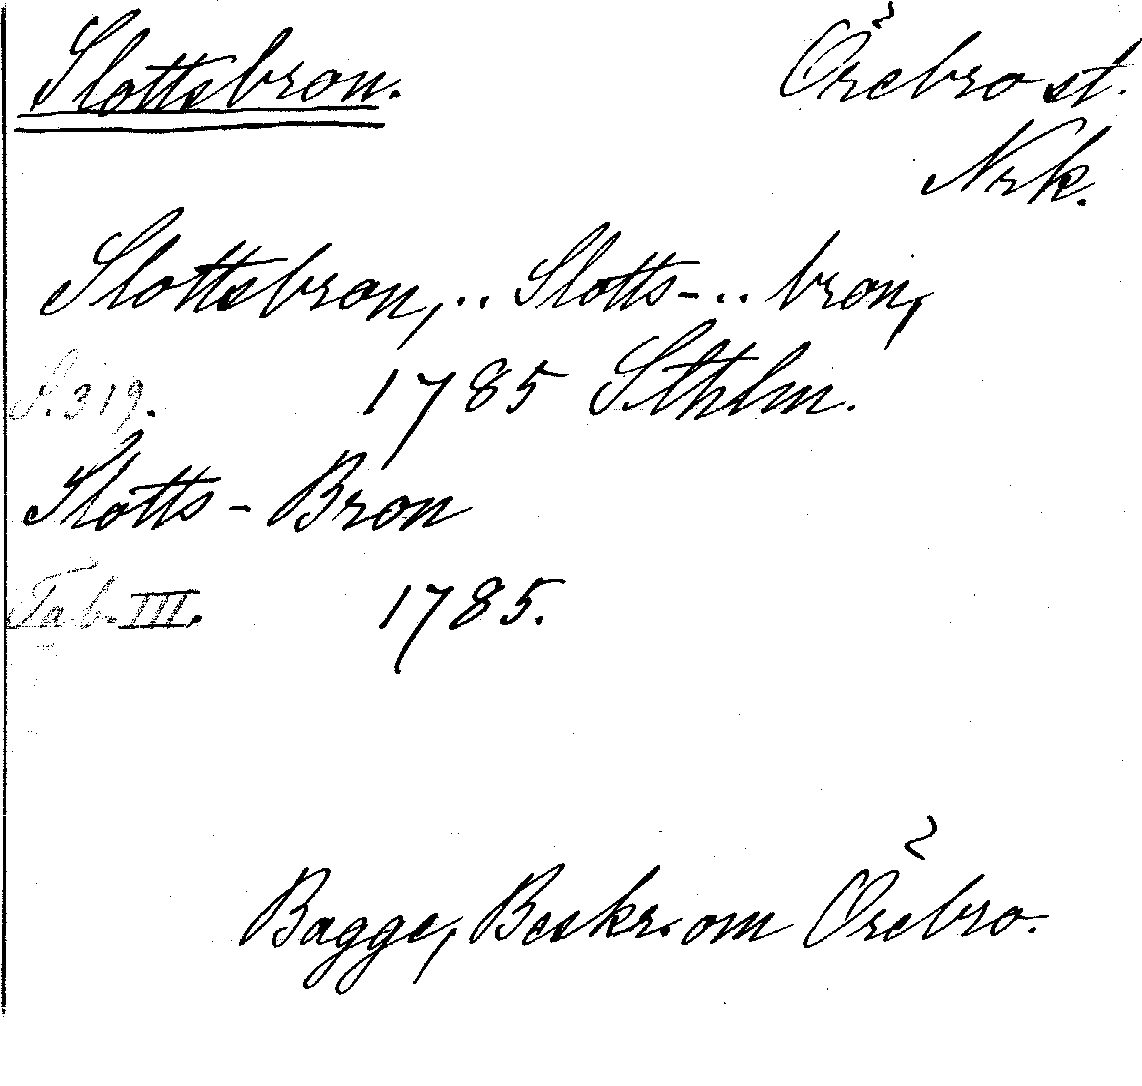 Slottsbron. Örebro st.
Nrk.
Slottsbron, .. Slotts- .. bron,
S. 319. 1785 Sthlm.
Slotts-Bron
Tab. III. 1785.
Bagge, Beskr. om Örebro.